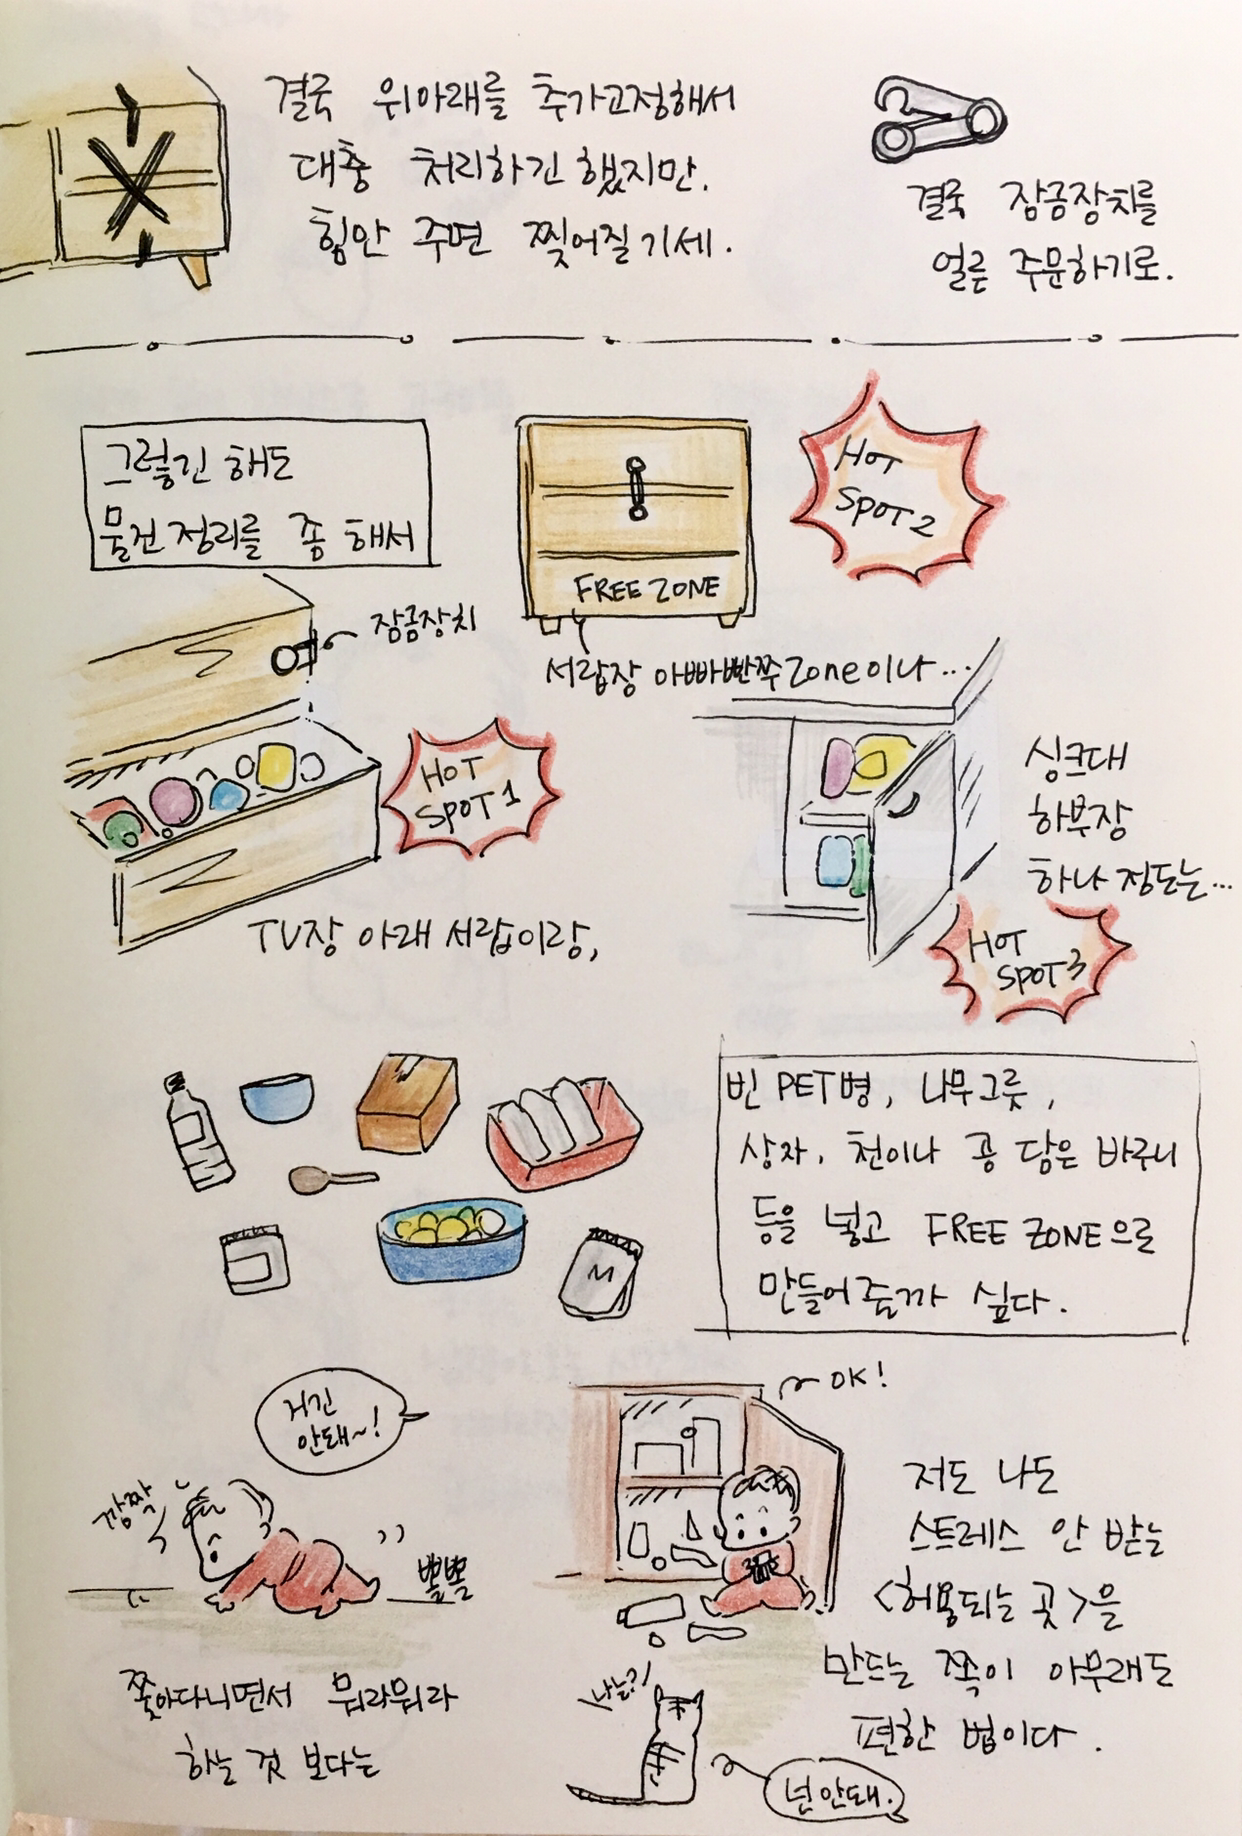 결국 위아래를 추가고정해서
대충 처리하긴 했지만.
힘만 주면 찢어질 기세.
결국 잠금장치를
얼른 주문하기로.
그렇긴 해도
물건 정리를 좀 해서
잠금장치
HOT
SPOT 1
TV장 아래 서랍이랑,
HOT
SPOT 2
FREE ZONE
서랍장 아빠빤쮸 Zone이나...
싱크대
하부장
하나 정도는...
HOT
SPOT 3
빈 PET병, 나무그릇,
상자, 천이나 공 담은 바구니
등을 넣고 FREE ZONE으로
만들어줄까 싶다.
M
거긴
안돼~!
깜짝
뽈뽈
쫓아다니면서 뭐라뭐라
하는 것 보다는
OK!
저도 나도
스트레스 안 받는
<허용되는 곳>을
만드는 쪽이 아무래도
편한 법이다.
나는?!
넌 안돼.